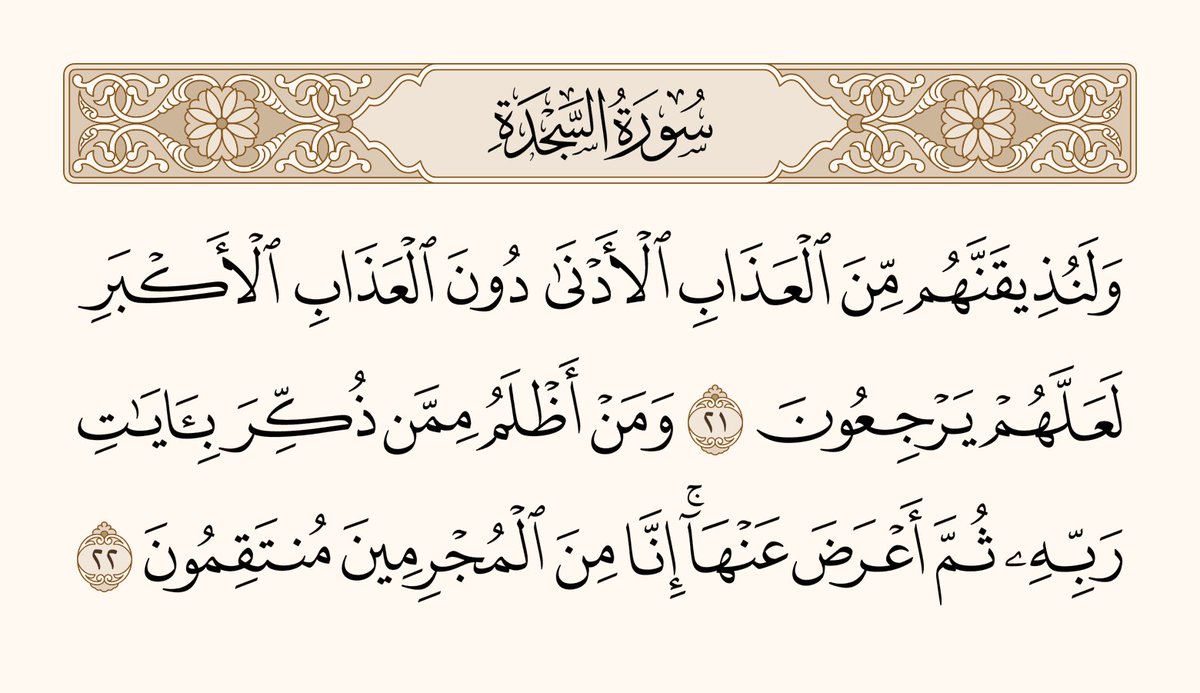 سُورَةُ السَّجْدَةِ
وَلَنُذِيقَنَّهُم مِّنَ ٱلْعَذَابِ ٱلْأَدْنَىٰ دُونَ ٱلْعَذَابِ ٱلْأَكْبَرِ
لَعَلَّهُمْ يَرْجِعُونَ ٢١ وَمَنْ أَظْلَمُ مِمَّن ذُكِّرَ بِـَٔايَـٰتِ
رَبِّهِۦ ثُمَّ أَعْرَضَ عَنْهَآ ۚ إِنَّا مِنَ ٱلْمُجْرِمِينَ مُنتَقِمُونَ ٢٢